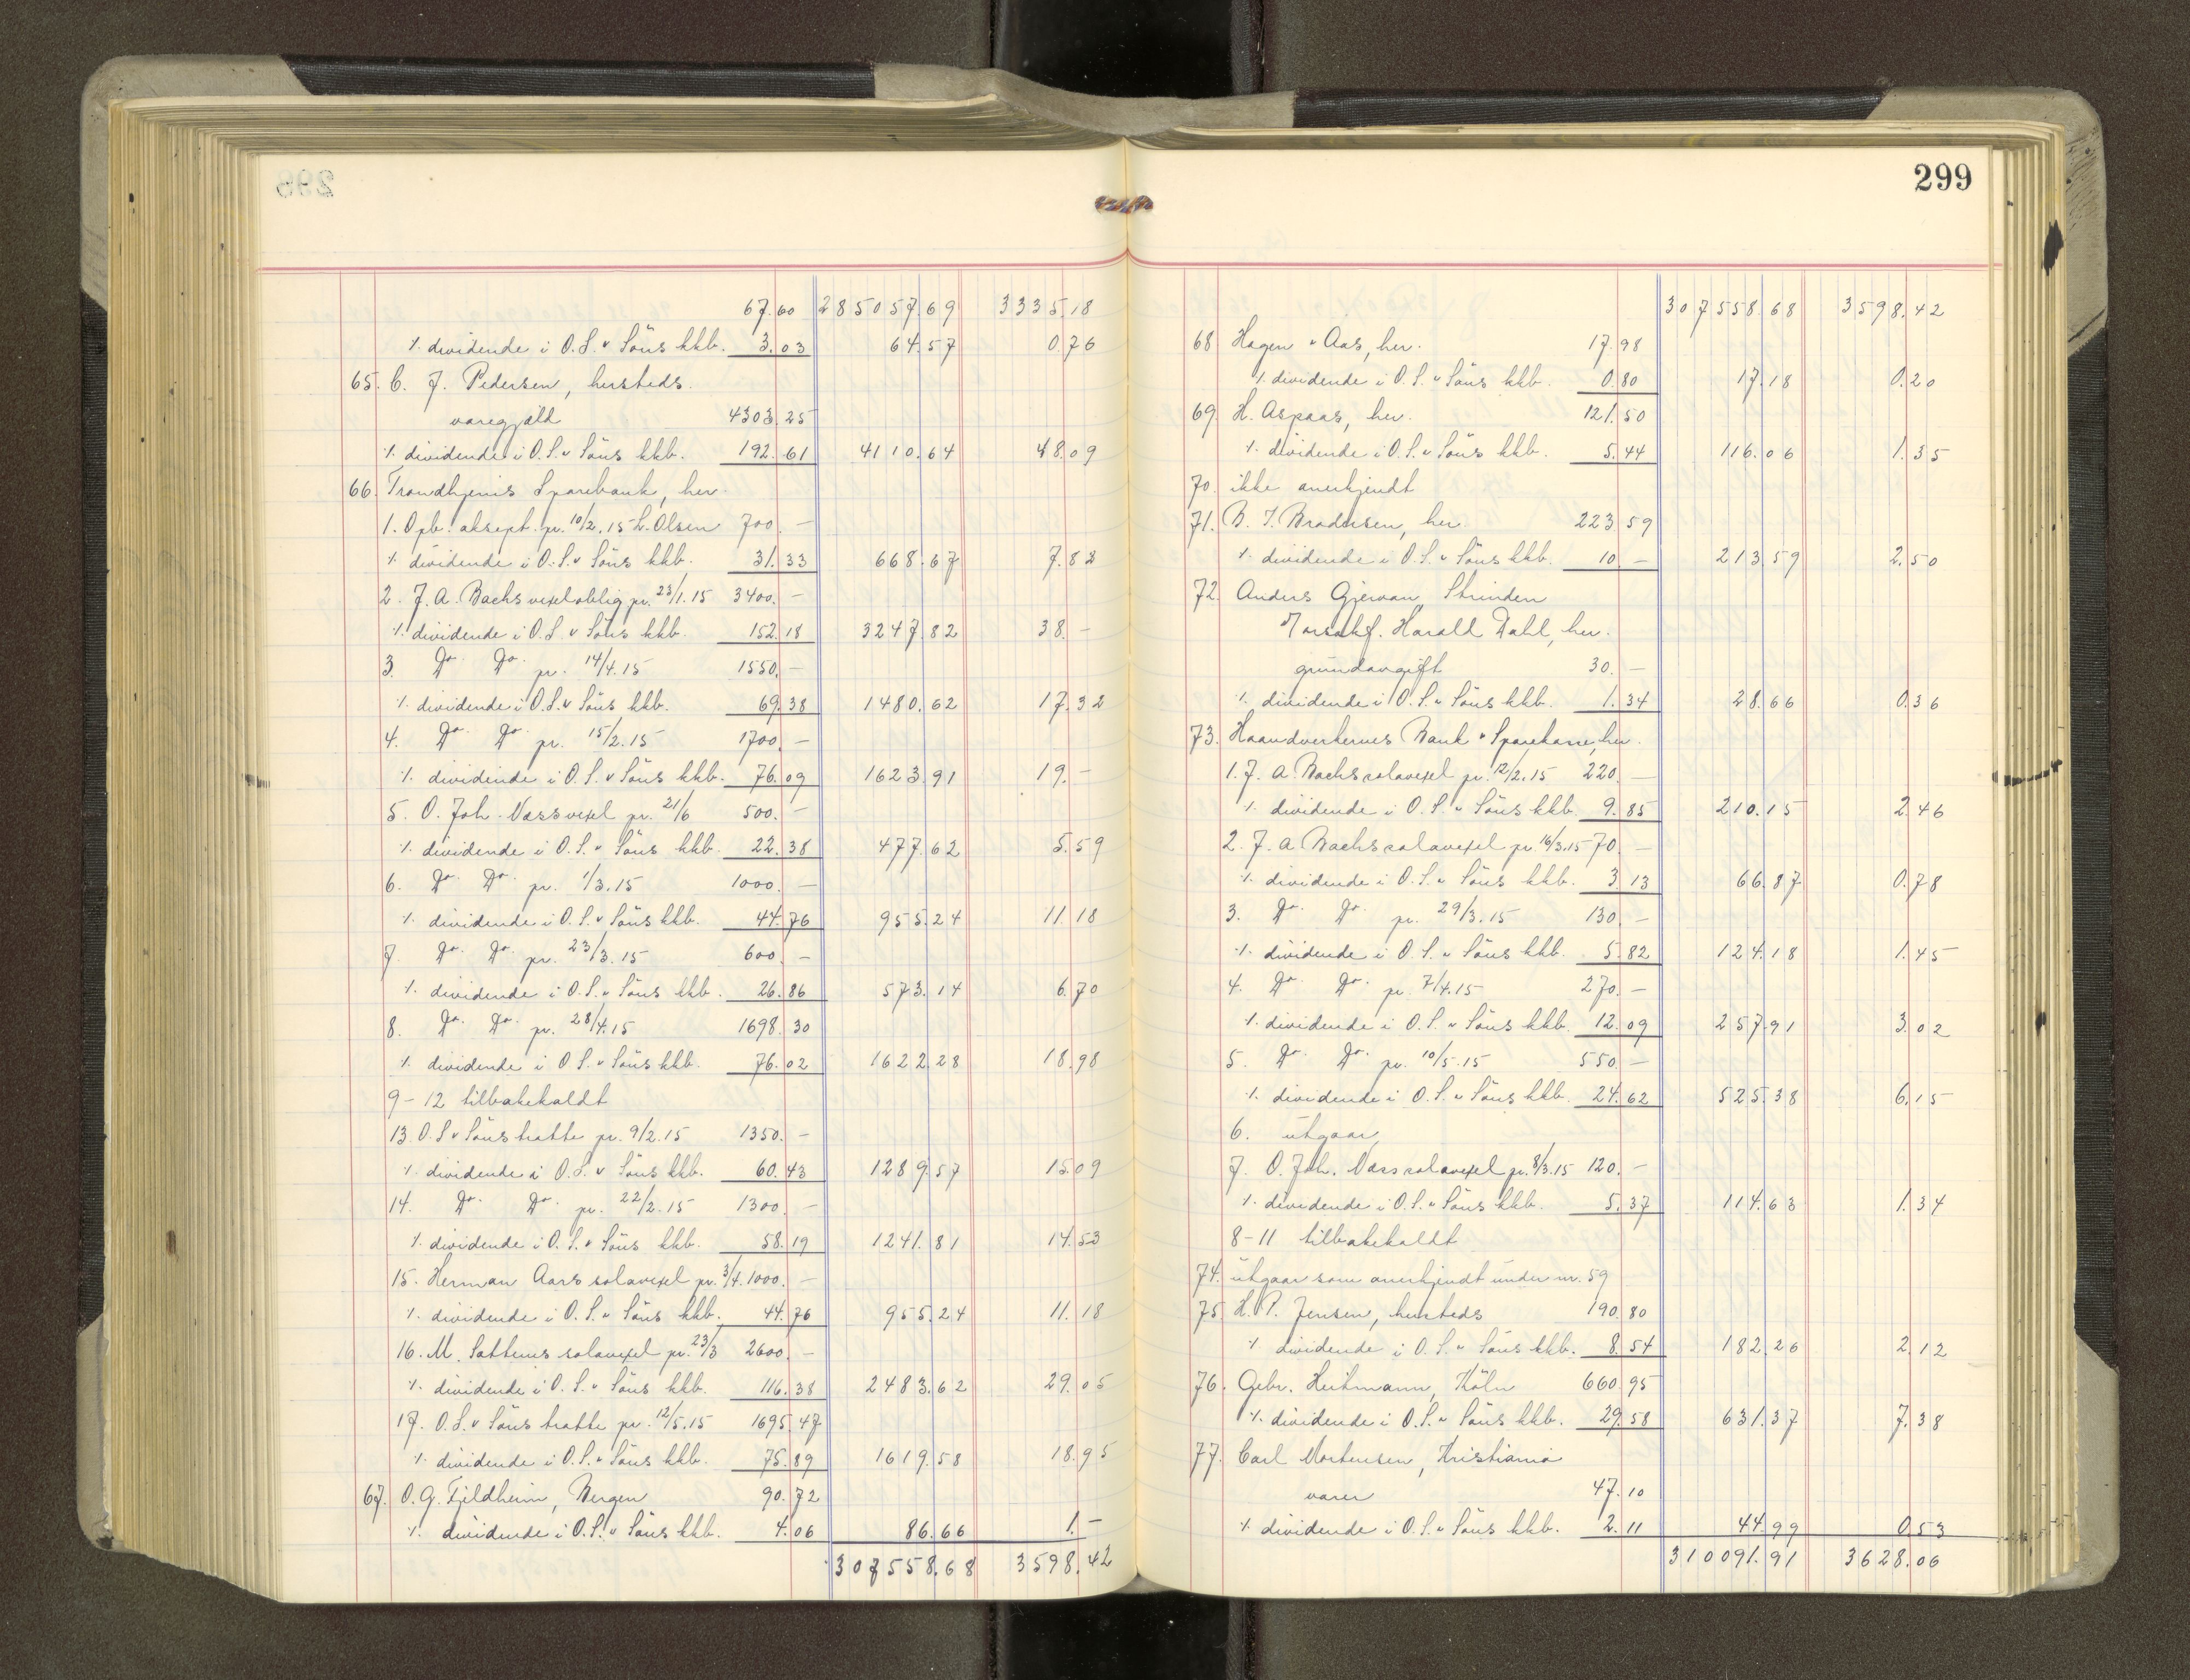 298
67.60 285057.69 3335.18
⁒ dividende i O.S. & Söns kkb. 3.03 64.57 0.76
65. C. J. Pedersen, hersteds.
varegjæld 4303.25
⁒ dividende i O.S. & Söns kkb. 192.61 4110.64 48.09
66. Trondhjems Sparebank, her
1. Opb. aksept. pr. 10/2.15 L. Olsen 700.—
⁒ dividende i O.S. & Söns kkb. 31.33 668.67 7.82
2. J. A. Bachs vexeloblig pr. 23/1.15 3400.—
⁒ dividende i O.S. & Söns kkb. 152.18 3247.82 38.—
3. Do. Do. pr. 14/4.15 1550.—
⁒ dividende i O.S. & Söns kkb. 69.38 1480.62 17.32
4. Do. Do. pr. 15/2.15 1700.—
⁒ dividende i O.S. & Söns kkb. 76.09 1623.91 19.—
5. O. Joh. Næss vexel pr. 21/6 500.—
⁒ dividende i O.S. & Söns kkb. 22.38 477.62 5.59
6. Do. Do. pr. 1/3.15 1000.—
⁒ dividende i O.S. & Söns kkb. 44.76 955.24 11.18
7. Do. Do. pr. 23/3.15 600.—
⁒ dividende i O.S. & Söns kkb. 26.86 573.14 6.70
8. Do. Do. pr. 28/4.15 1698.30
⁒ dividende i O.S. & Söns kkb. 76.02 1622.28 18.98
9-12 tilbakekaldt
13. O.S. & Söns tratte pr. 9/2.15 1350.—
⁒ dividende i O.S. & Söns kkb. 60.43 1289.57 15.09
14. Do. Do. pr. 22/2.15 1300.—
⁒ dividende i O.S. & Söns kkb. 58.19 1241.81 14.53
15. Herman Aars solavexel pr. 3/4. 1000.—
⁒ dividende i O.S. & Söns kkb. 44.76 955.24 11.18
16. M. Sattems solavexel pr. 23/3 2600.—
⁒ dividende i O.S. & Söns kkb. 116.38 2483.62 29.05
17. O.S. & Söns tratte pr. 12/5.15 1695.47
⁒ dividende i O.S. & Söns kkb. 75.89 1619.58 18.95
67. O. G. Fjeldheim, Bergen 90.72
⁒ dividende i O.S. & Söns kkb. 4.06 86.66 1.—
307558.68 3598.42
299
307558.68 3598.42
68 Hagen & Aas, her. 17.98
⁒ dividende i O.S. & Söns kkb. 0.80 17.18 0.20
69. H. Aspaas, her. 121.50
⁒ dividende i O.S. & Söns kkb. 5.44 116.06 1.35
70. ikke anerkjendt
71. B. J. Brodersen, her. 223.59
⁒ dividende i O.S. & Söns kkb. 10.— 213.59 2.50
72. Anders Gjervan, Strinden
Harald Dahl, her.
grundavgift 30.—
⁒ dividende i O.S. & Söns kkb. 1.34 28.66 0.36
73. Haandverkernes Bank & Sparekasse, her.
1. J. A. Bachs solavexel pr. 12/2.15 220.—
⁒ dividende i O.S. & Söns kkb. 9.85 210.15 2.46
2. J. A. Bachs solavexel pr. 16/3.15 70.—
⁒ dividende i O.S. & Söns kkb. 3.13 66.87 0.78
3. Do. Do. pr. 29/3.15 130.—
⁒ dividende i O.S. & Söns kkb. 5.82 124.18 1.45
4. Do. Do. pr. 7/4.15 270.—
⁒ dividende i O.S. & Söns kkb. 12.09 257.91 3.02
5. Do. Do. pr. 10/5.15 550.—
⁒ dividende i O.S. & Söns kkb. 24.62 525.38 6.15
6. utgaar
7. O. Joh. Næss solavexel pr. 8/3.15 120.—
⁒ dividende i O.S. & Söns kkb. 5.37 114.63 1.34
8-11 tilbakekaldt
74. utgaar som anerkjendt under nr. 59
75. H. P. Jensen, hersteds 190.80
⁒ dividende i O.S. & Söns kkb. 8.54 182.26 2.12
76. Gebr. Heitmann, Köln 660.95
⁒ dividende i O.S. & Söns kkb. 29.58 631.37 7.38
77. Carl Mortensen, Kristiania
varer 47.10
⁒ dividende i O.S. & Söns kkb. 2.11 44.99 0.53
310091.91 3628.06